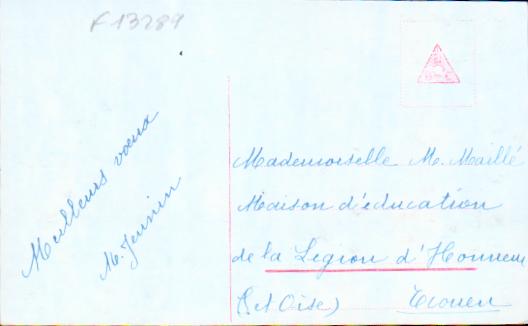 F 13289
Meilleurs vœux
M. Jennin
Mademoiselle M. Maillé
Maison d'éducation
de la Légion d'Honneur
(S et Oise) Ecouen